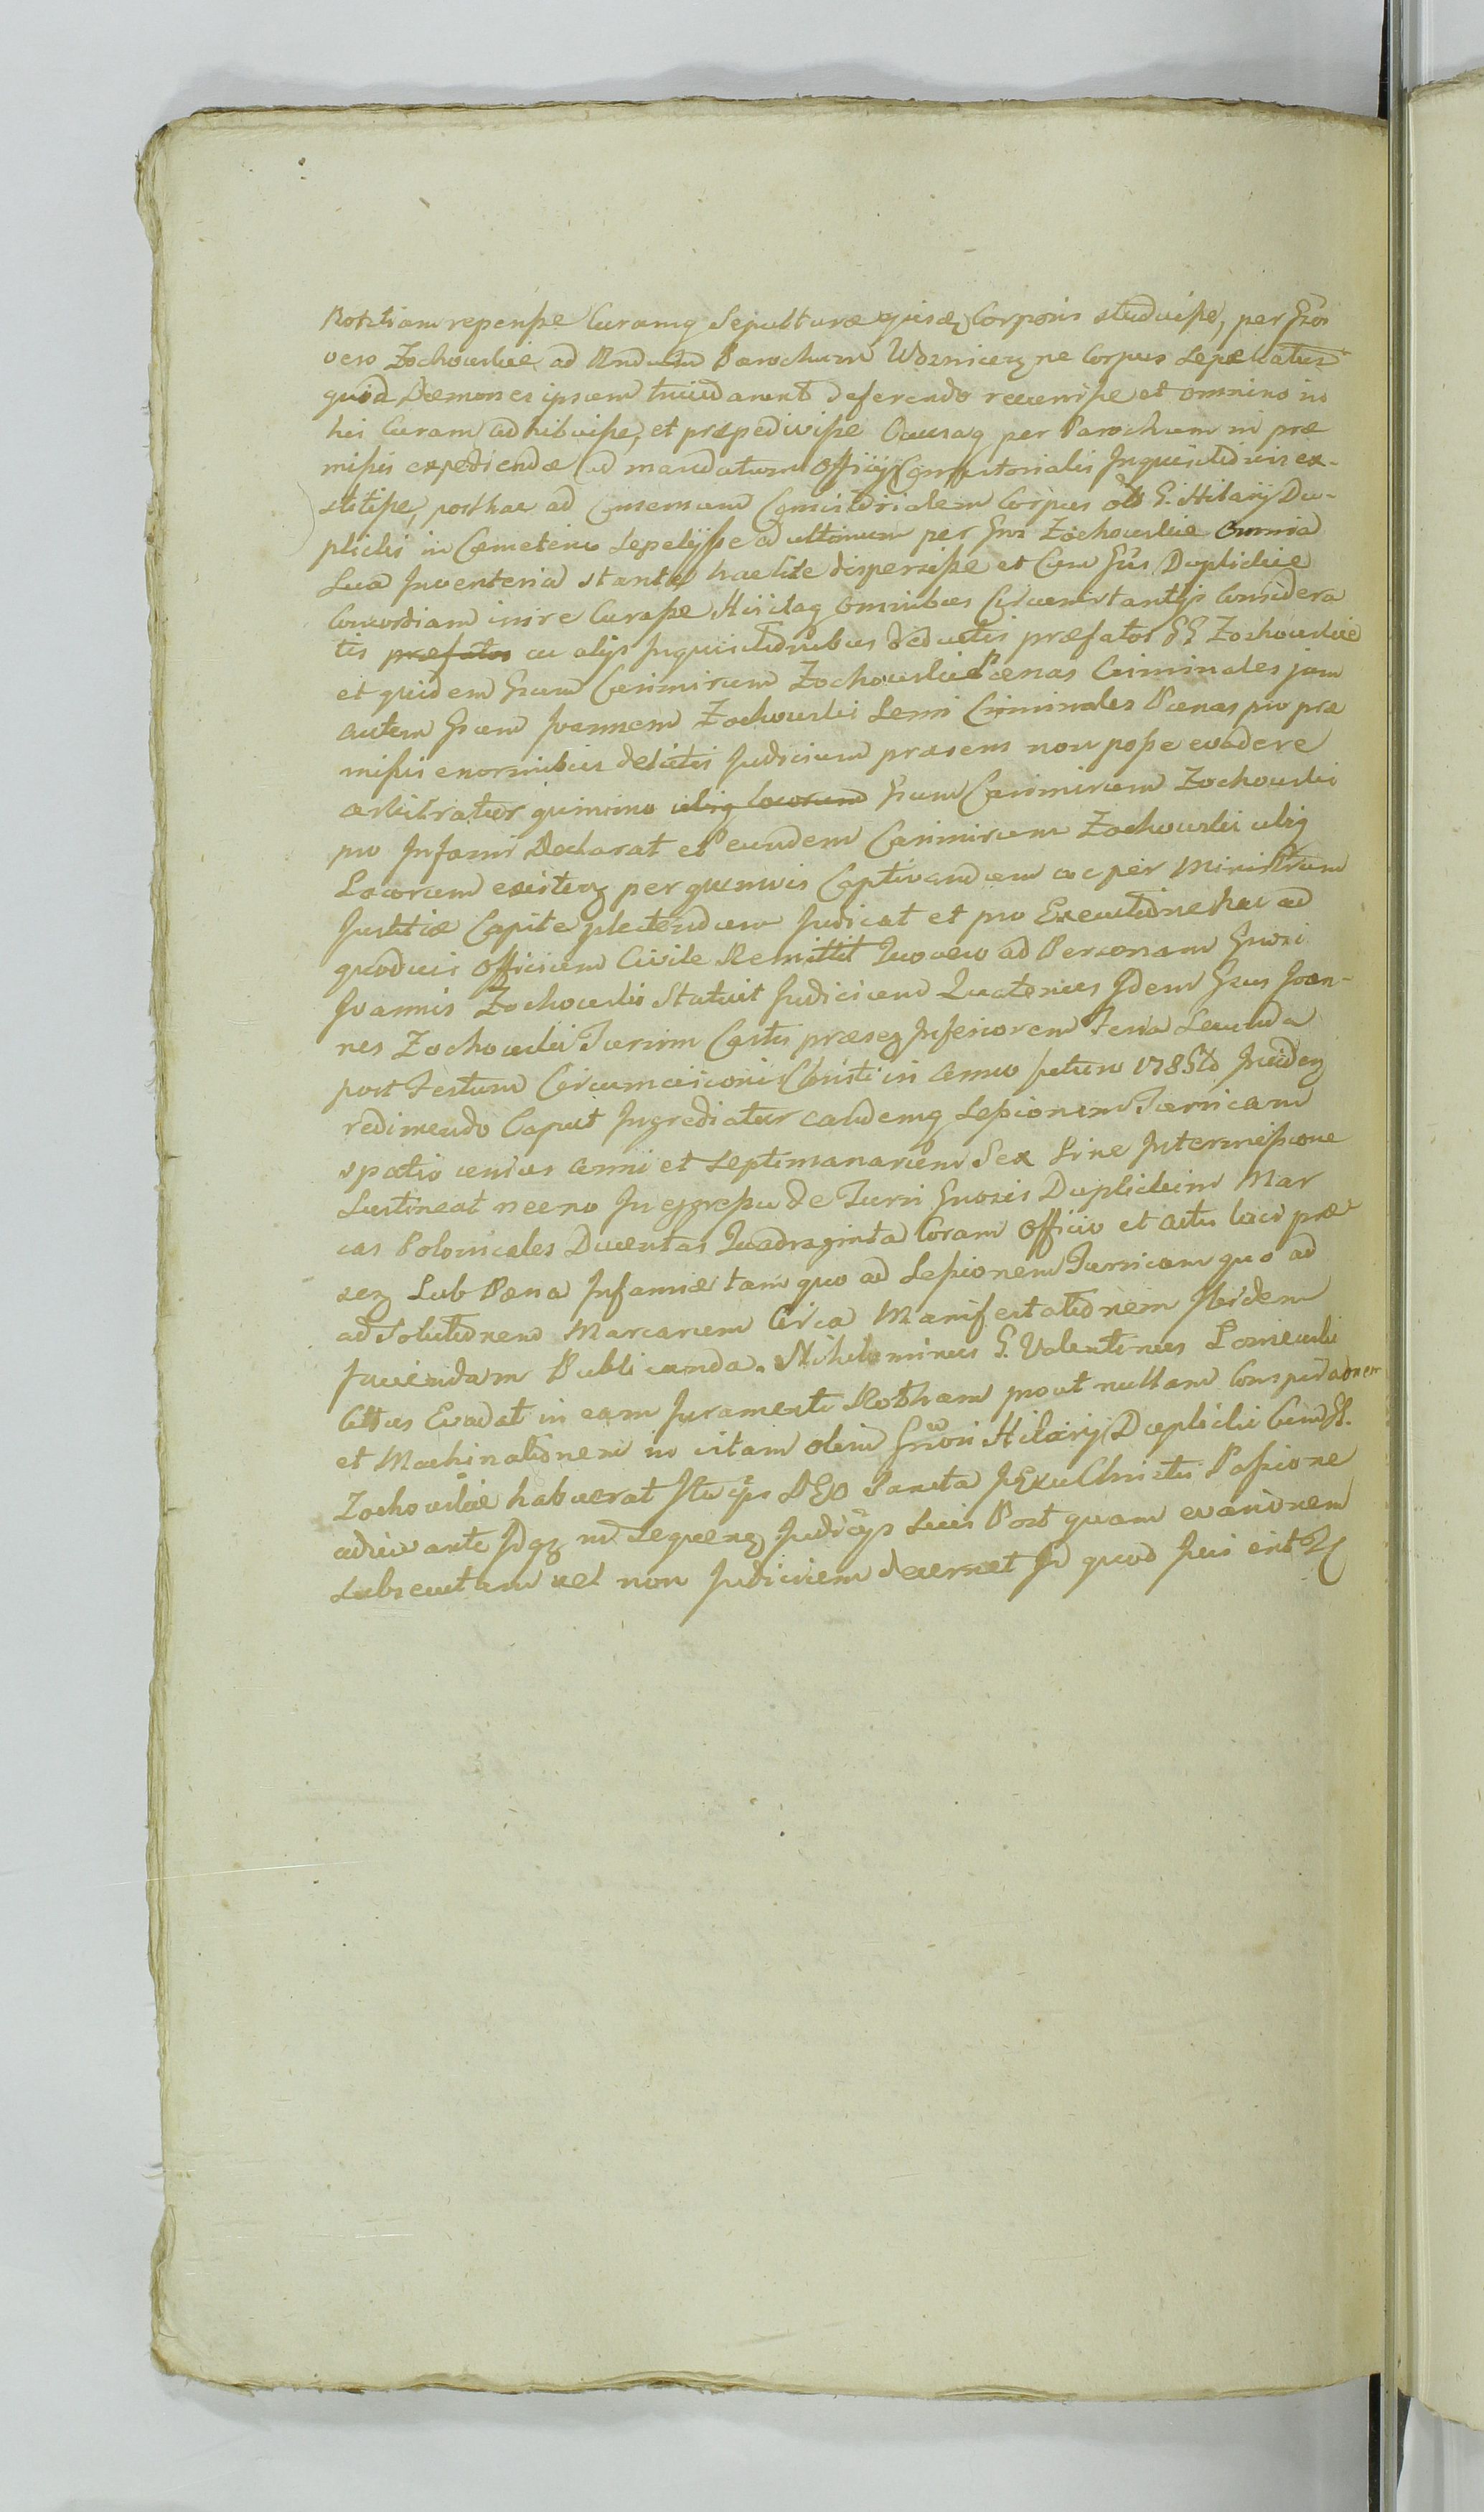 Rotzliam repensse Curamq Sepulturæ ejusdeq Corporis studuisse, per Gsos
vero Zochowskie ad Rndum Parochum Woznicen ne Corpus sepeliatur
quod Dæmones ipsum trucidarunt deferendo recurrisse et omnino in
his Curam adhibuisse, et præpedivisse Causaq per Parochum in præ
missis expedienda ad mandatum Officij Consistorialis Inquisitionis ex-
stitisse, posthac ad Consensum Consistorialem Corpus olim G. Hilarij Du-
plicki in Cæmeterio Sepelijsse ad ultimum per Gsos Zochowskie Omnia
Sua Inventeria stante hac lite dispersisse et Cum Gsis Duplickie
Concordiam inire Curasse Hisitaq omnibus Circumstantijs Considera
tis præfatos ac alijs Inquisitionibus deductis præfatos GG Zochowskie
et quidem Gsum Casimirum Zochowskie Pænas Criminales jam
autem Gsum Joannem Zochowski Semi Criminales Pænas pro præ
missis enormibus delictis Judicium præsens non posse evadere
arbitratur quinimo ubiq locorum Gsum Casimirum Zochowski
pro Infami Declarat et eundem Casimirum Zochowski ubiq
Locorum existen per quemvis Captivandum ac per Ministrum
Justitiæ Capite plectendum Judicat et pro Executione hac ad
quodvis Officium Civile Remittit Quo vero ad Personam Gnosi
Joannis Zochowski Statuit Judicium Quatenus Idem Gsus Joan-
nes Zochowski Turrim Castri præsen Inferiorem Feria Secunda
post Festum Circumcisionis Christi in Anno futuro 1785to Ineiden
redimendo Caput Ingrediatur eandemq Sessionem Turricam
spatio unius anni et septimanarum Sex Sine Intermissione
Sustineat neeno In egressu de Turri Gnosis Duplickim Mar
cas Polonicales Ducentas Quadraginta Coram Officio et actu loci præ
sen Sub Pæna Infamiæ tam quo ad Sessionem Turricam quo ad
ad Solutionem Marcarum Circa Manifestationem Ibidem
faciendam Publicanda. Nihilominus G. Valentinus Lonieuski
Cttus Evadat in eam Juramenti Rotham prout nullam Conspirationem
et Machinationem in vitam olim Gnosi Hilarij Duplicki Cum GG.
Zochowskie habuerat Ita ejus DEO Sancta JEsu Christi Passione
adiuvante Idq in Sequen Judicijs Suis Post quam evasionem
Subsecutam vel non Judicium decernet Id quod Juis erit